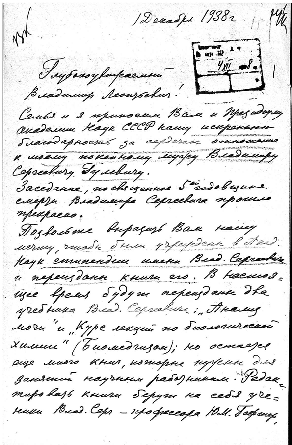 1 Декабря 1938 г
Глубокоуважаемый
Владимир Леонтьевич!
Семья и я приносим Вам и Президиуму
Академии Наук СССР нашу искреннюю
благодарность за сердечное отношение
к моему покойному мужу Владимиру
Сергеевичу Гулевичу.
Заседание, посвященное 5ой годовщине
смерти Владимира Сергеевича прошло
прекрасно.
Позвольте выразить Вам нашу
мечту, чтобы были учреждены в Акад.
Наук стипендии имени Влад. Сергеевича
и переизданы книги его. В настоя-
щее время будут переизданы два
учебника Влад. Сергеевича: "Анализ
мочи" и "Курс лекций по биологической
химии" (Биомедгизом); но остается
еще много книг, которые нужны для
занятий научным работникам. Редак-
тировать книги берут на себя уче-
ники Влад. Серг — профессора